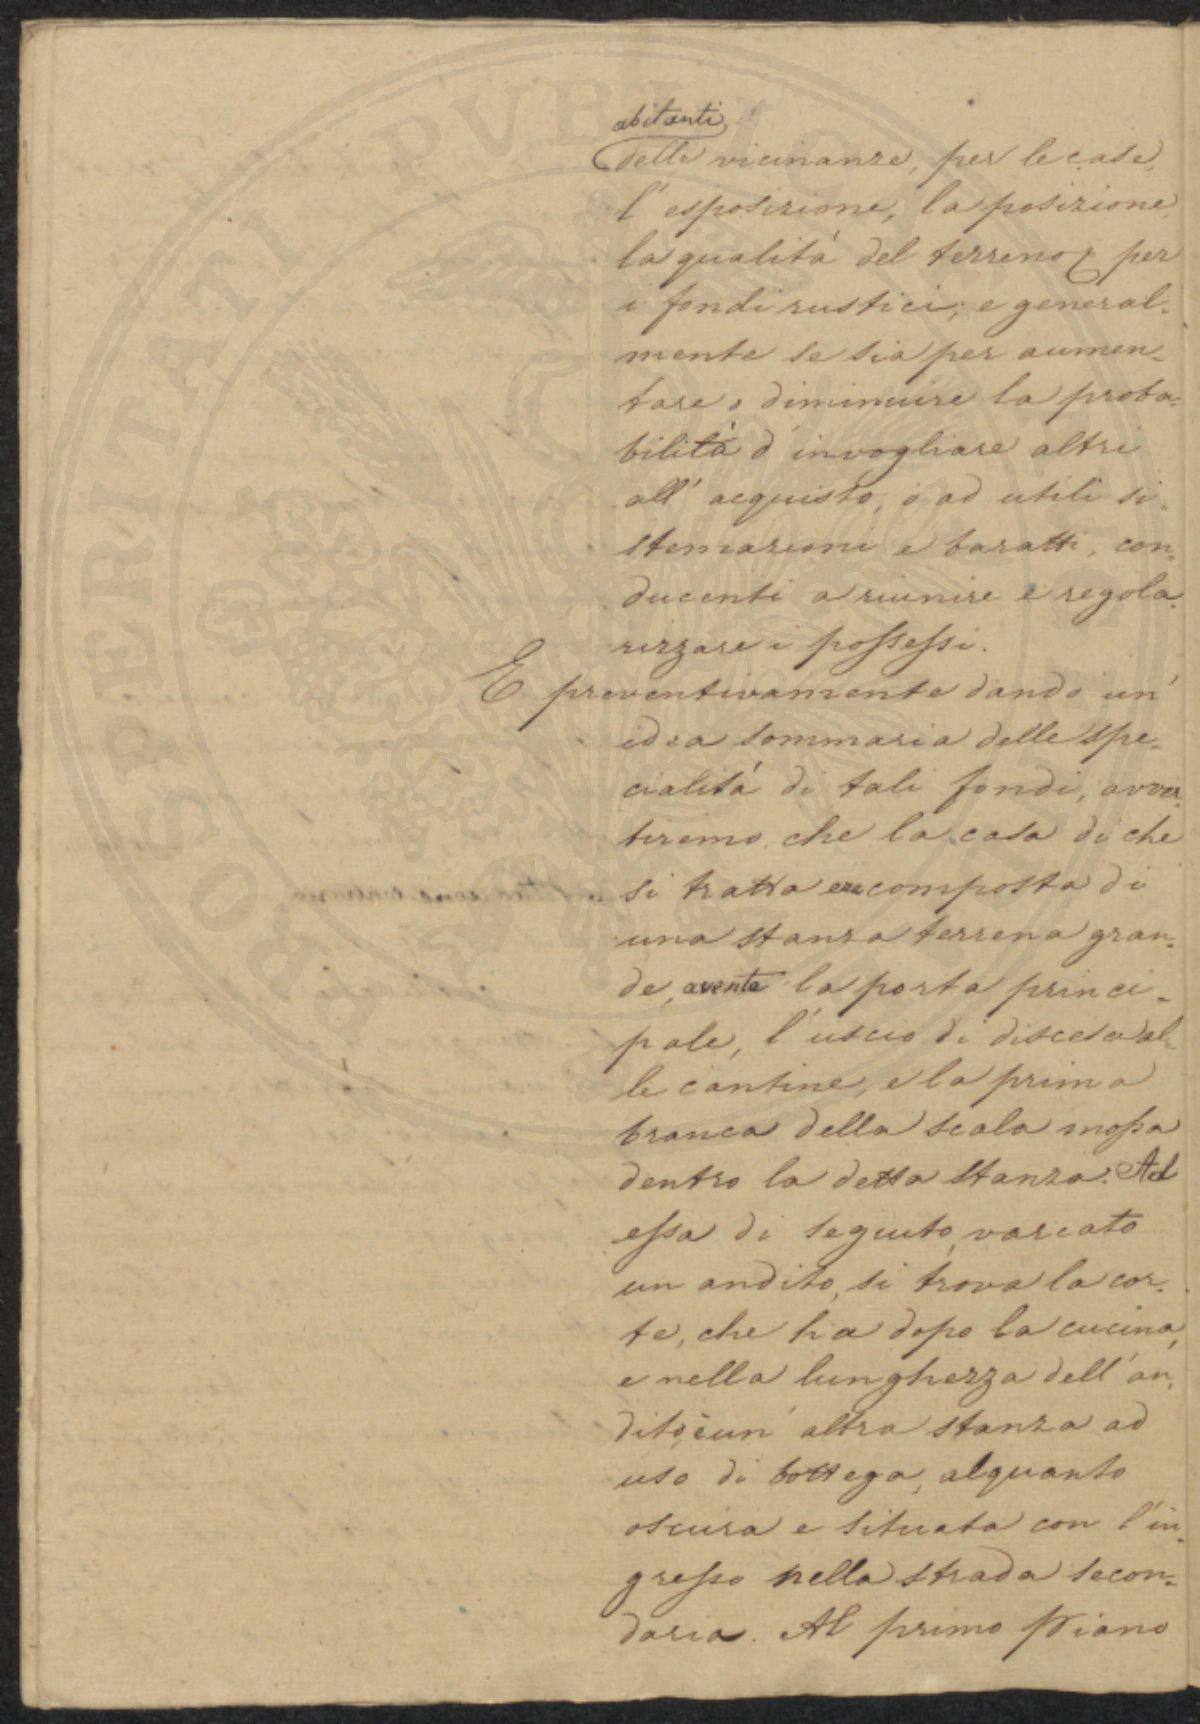 abitanti
delle vicinanze, per le case,
l'esposizione, la posizione,
la qualità del terreno, per
i fondi rustici; e general-
mente se sia per aumen-
tare o diminuire la proba-
bilità d'invogliare altri
all'acquisto, o ad utili si-
stemazioni e baratti, con-
ducenti a riunire e regola-
rizzare i possessi.
E preventivamente dando un'
idea sommaria delle spe-
cialità di tali fondi, avver-
tiremo che la casa di che
si tratta era composta di
una stanza terrena gran-
de, avente la porta princi-
pale, l'uscio di discesa al-
le cantine, e la prima
branca della scala mossa
dentro la detta stanza. Ad
essa di seguito, varcato
un andito, si trova la cor-
te, che ha dopo la cucina,
e nella lunghezza dell'an-
dito, è un'altra stanza ad
uso di bottega, alquanto
oscura e situata con l'in-
gresso nella strada secon-
daria. Al primo Piano
PROSPERITATI PVBLICAE